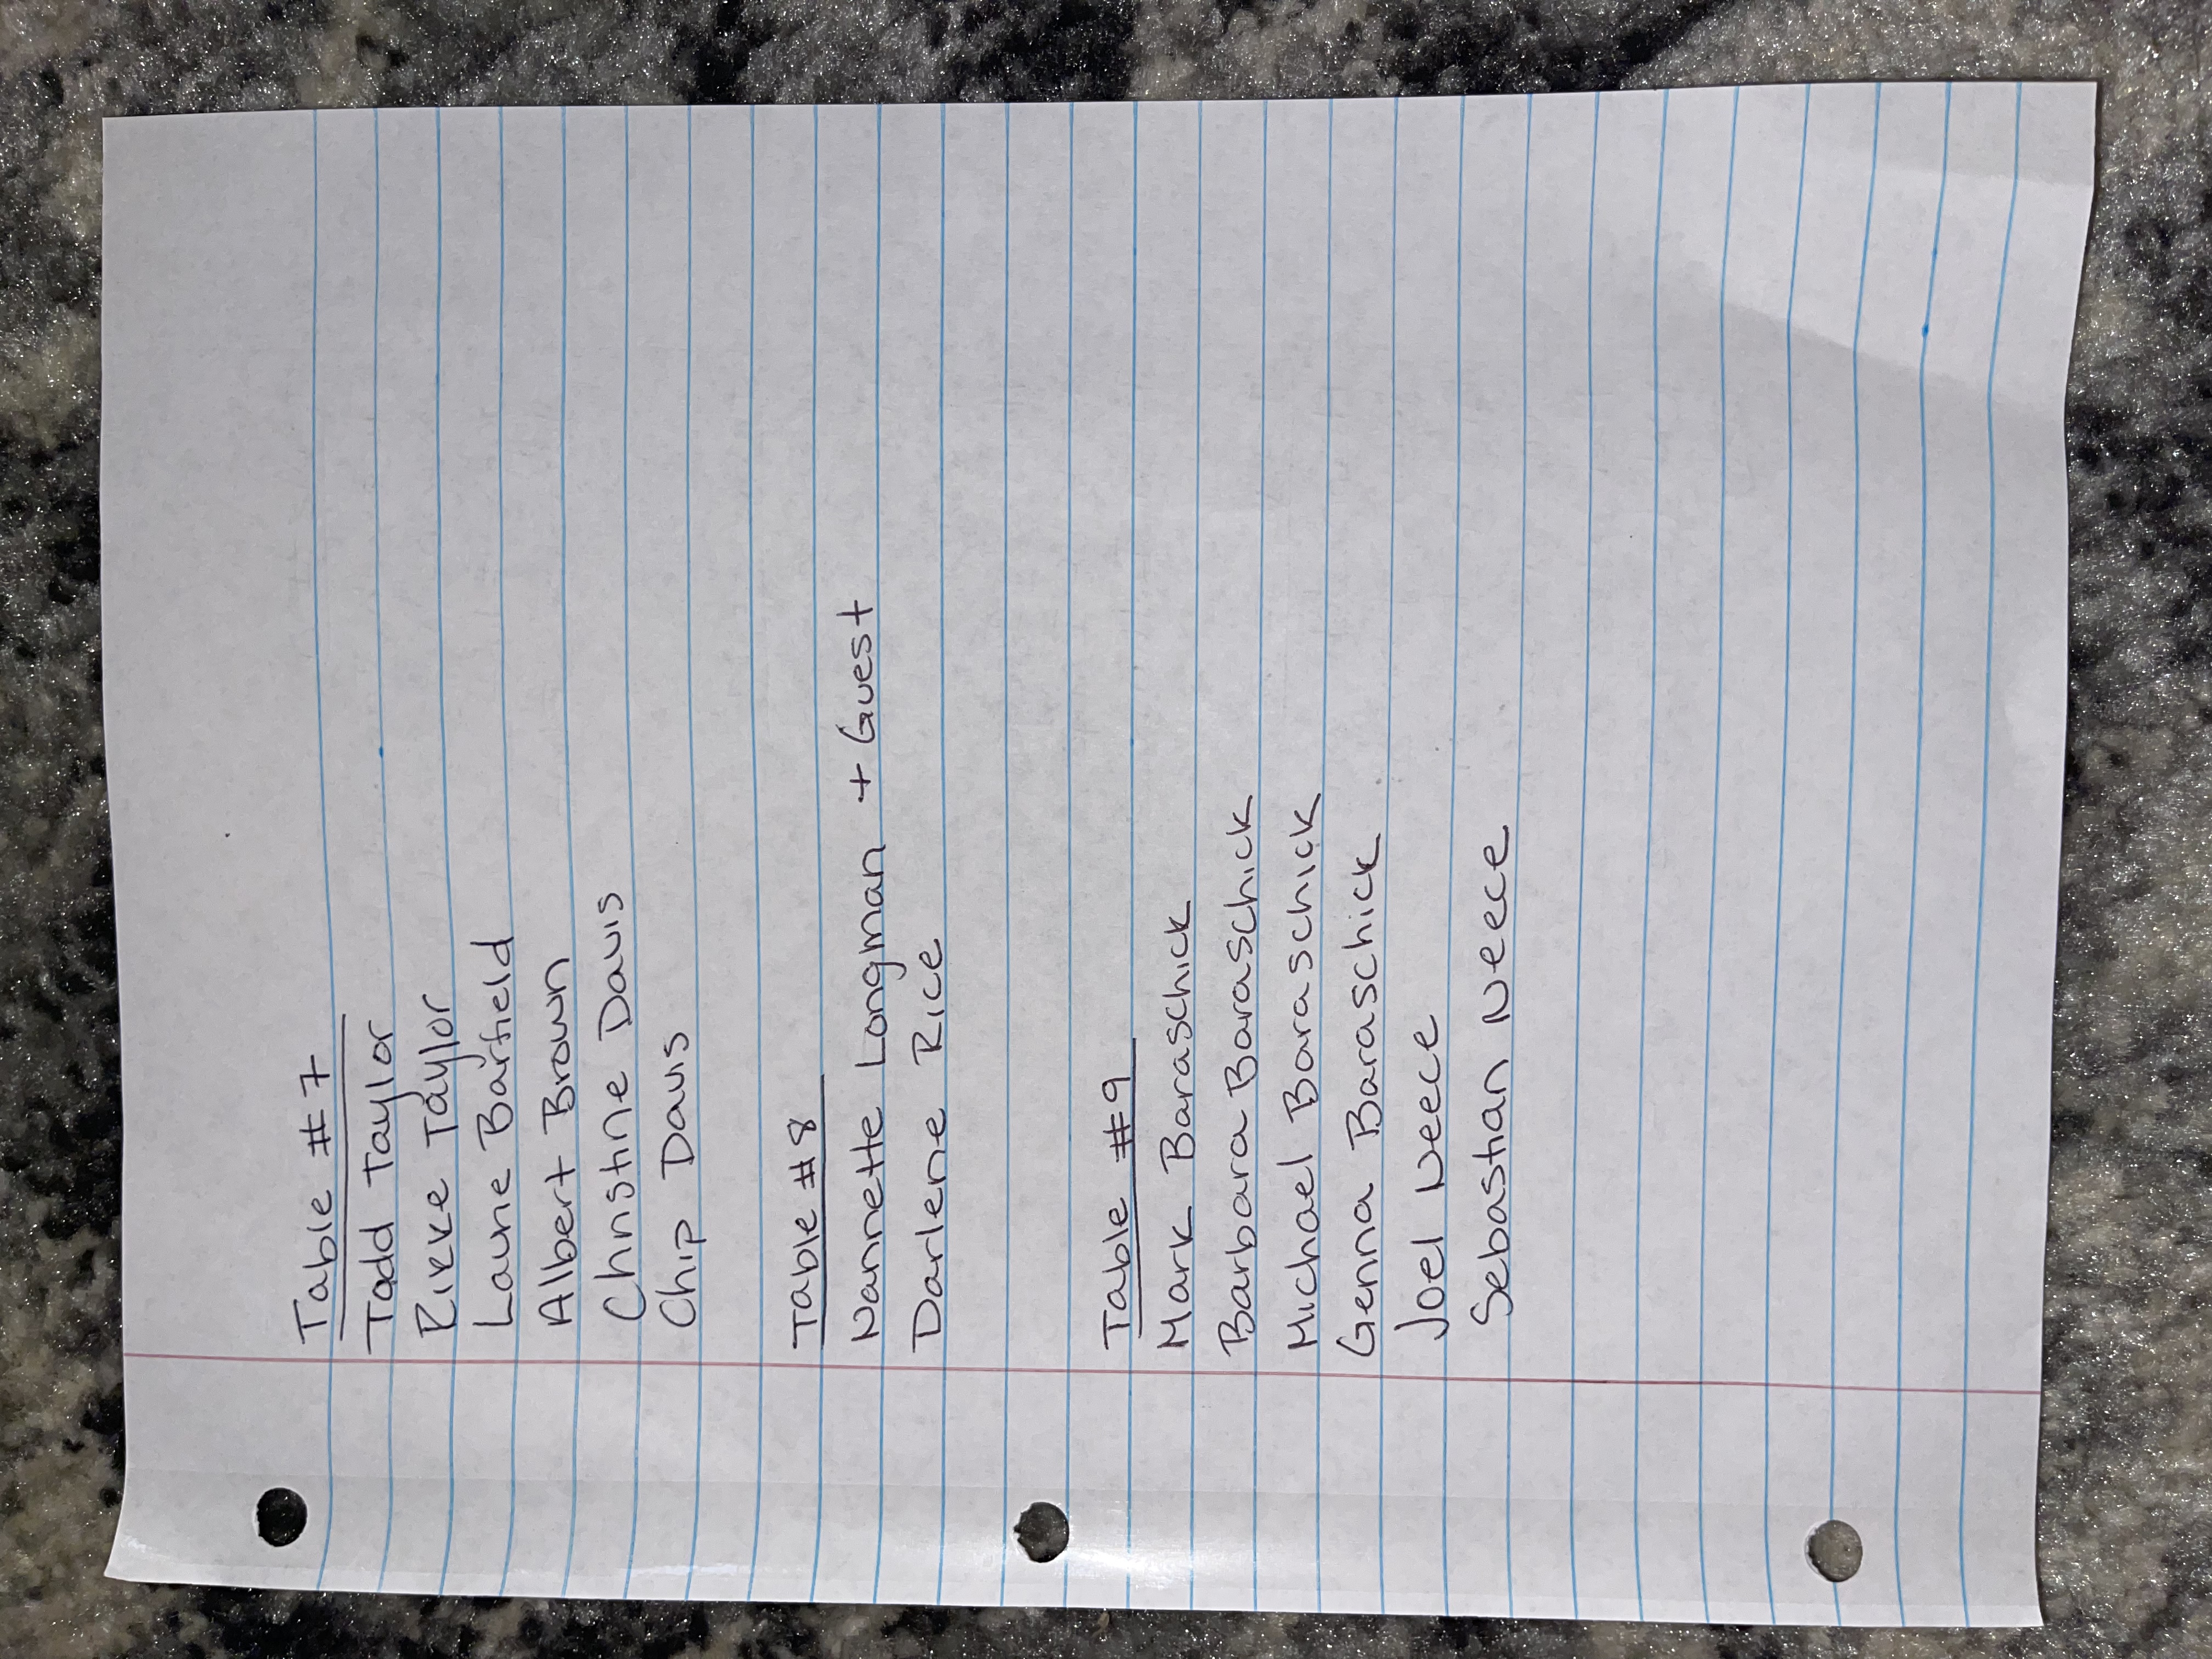 Table #7
Todd Taylor
Rikke Taylor
Laurie Barfield
Albert Brown
Christine Davis
Chip Davis
Table #8
Nannette Longman + Guest
Darlene Rice
Table #9
Mark Baraschick
Barbara Baraschick
Michael Baraschick
Genna Baraschick
Joel Neece
Sebastian Neece